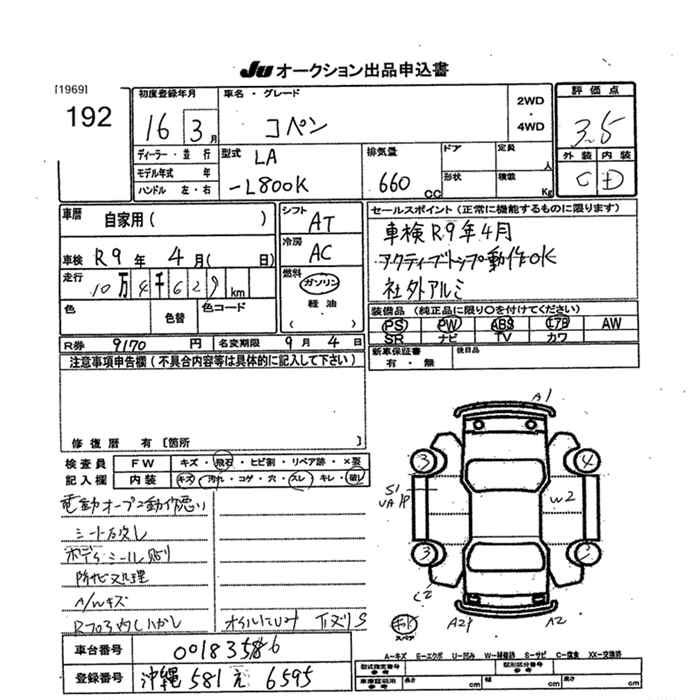 JU オークション出品申込書
[1969]
192
初度登録年月
16 3月
車名・グレード
コペン
2WD
・
4WD
評価点
3.5
外装 内装
C D
ディーラー・並行
モデル年式 年
ハンドル 左・右
型式
LA
-L800K
排気量
660 CC
ドア
形状
定員
人
積載
Kg
車歴 自家用( )
車検 R9年 4月( 日)
走行 10万4千629 km
色
色替
色コード
シフト AT
冷房 AC
燃料
ガソリン
軽油
( )
セールスポイント(正常に機能するものに限ります)
車検R9年4月
アクティブトップ動作OK
社外アルミ
装備品(純正品に限り○を付けてください)
PS PW ABS エアB AW
SR ナビ TV カワ
R券 9170円 名変期限 9月4日
新車保証書
有・無
後日品
注意事項申告欄(不具合内容等は具体的に記入して下さい)
修復歴 有[箇所
検査員
記入欄
FW キズ・飛石・ヒビ割・リペア跡・×要
内装 キズ・汚れ・コゲ・穴・スレ・キレ・破レ
電動オープン動作悪い
シート破し
防化処理
A/Wキズ
オイルにじみ 下ズリS
A1
3
4
S1
W2
3
3
C2
A2
スペア
A2
車台番号 00183586
登録番号 沖縄 581 え 6595
A-キズ E-エクボ U-凹み W-補修跡 S-サビ C-腐食 XX-交換済
型式指定番号
参考
類別区分番号
参考
車庫証明用
参考
長さ cm 幅 cm 高さ cm